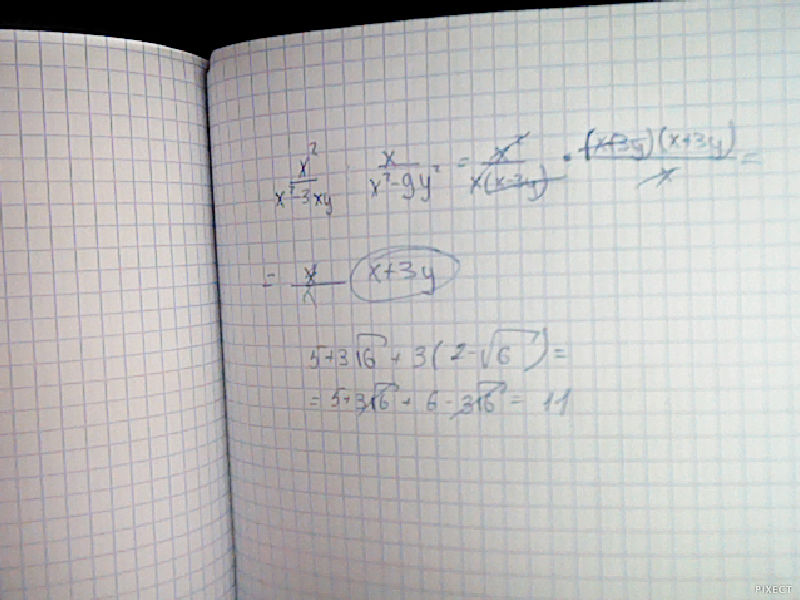 x²/(x²-3xy) : x/(x²-9y²) = x²/(x(x-3y)) · (x-3y)(x+3y)/x =
= x/x (x+3y)
5+3√6 + 3(2-√6) =
= 5+3√6 + 6-3√6 = 11
PIXECT